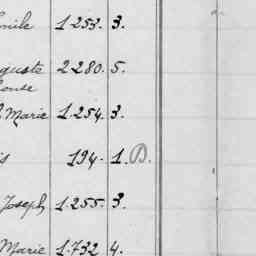 1.253. 3.
2280. 5.
Marie 1.254. 3.
194. 1. B.
Joseph 1.255. 3.
Marie 1.732 4.